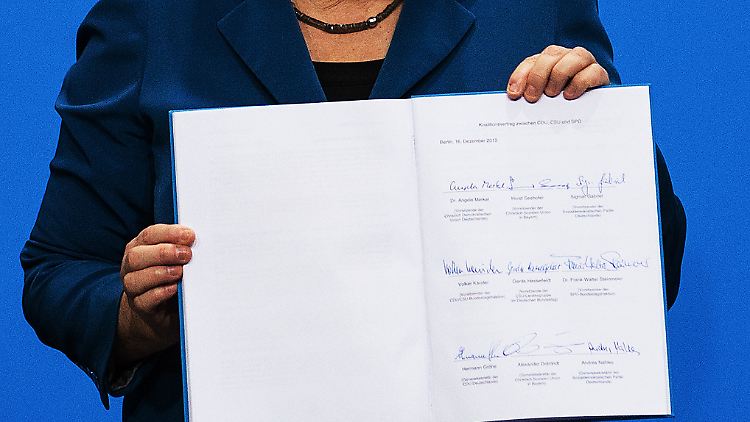 Koalitionsvertrag zwischen CDU, CSU und SPD
Berlin, 16. Dezember 2013
Angela Merkel
Dr. Angela Merkel Horst Seehofer Sigmar Gabriel
Vorsitzende der Vorsitzender der Vorsitzender der
Christlich Demokratischen Christlich-Sozialen Union Sozialdemokratischen Partei
Union Deutschlands in Bayern Deutschlands
Volker Kauder Gerda Hasselfeldt
Volker Kauder Gerda Hasselfeldt Dr. Frank-Walter Steinmeier
Vorsitzender der Vorsitzende der Vorsitzender der
CDU/CSU-Bundestagsfraktion CSU-Landesgruppe SPD-Bundestagsfraktion
im Deutschen Bundestag
Hermann Gröhe Alexander Dobrindt Andrea Nahles
Generalsekretär der Generalsekretär der Generalsekretärin der
CDU Deutschlands Christlich-Sozialen Union Sozialdemokratischen Partei
in Bayern Deutschlands